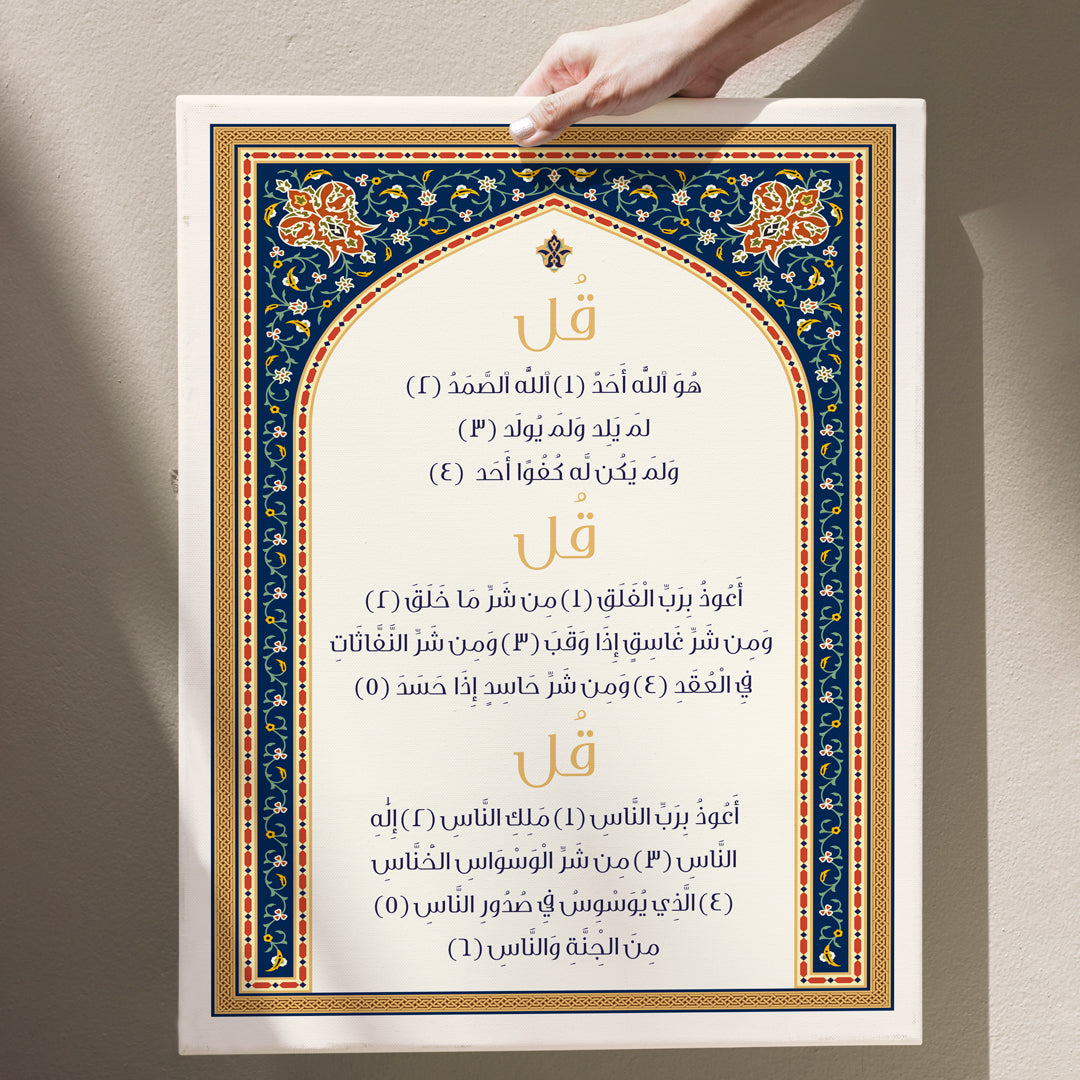 قُل
هُوَ ٱللَّه أَحَدٌ (١) ٱللَّه ٱلصَّمَدُ (٢)
لَمۡ يَلِد وَلَمۡ يُولَد (٣)
وَلَمۡ يَكُن لَّه كُفُوًا أَحَد (٤)
قُل
أَعُوذُ بِرَبِّ الْفَلَقِ (١) مِن شَرِّ مَا خَلَقَ (٢)
وَمِن شَرِّ غَاسِقٍ إِذَا وَقَبَ (٣) وَمِن شَرِّ النَّفَّاثَاتِ
فِي الْعُقَدِ (٤) وَمِن شَرِّ حَاسِدٍ إِذَا حَسَدَ (٥)
قُل
أَعُوذُ بِرَبِّ النَّاسِ (١) مَلِكِ النَّاسِ (٢) إِلَٰهِ
النَّاسِ (٣) مِن شَرِّ الْوَسْوَاسِ الْخَنَّاسِ
(٤) الَّذِي يُوَسْوِسُ فِي صُدُورِ النَّاسِ (٥)
مِنَ الْجِنَّةِ وَالنَّاسِ (٦)